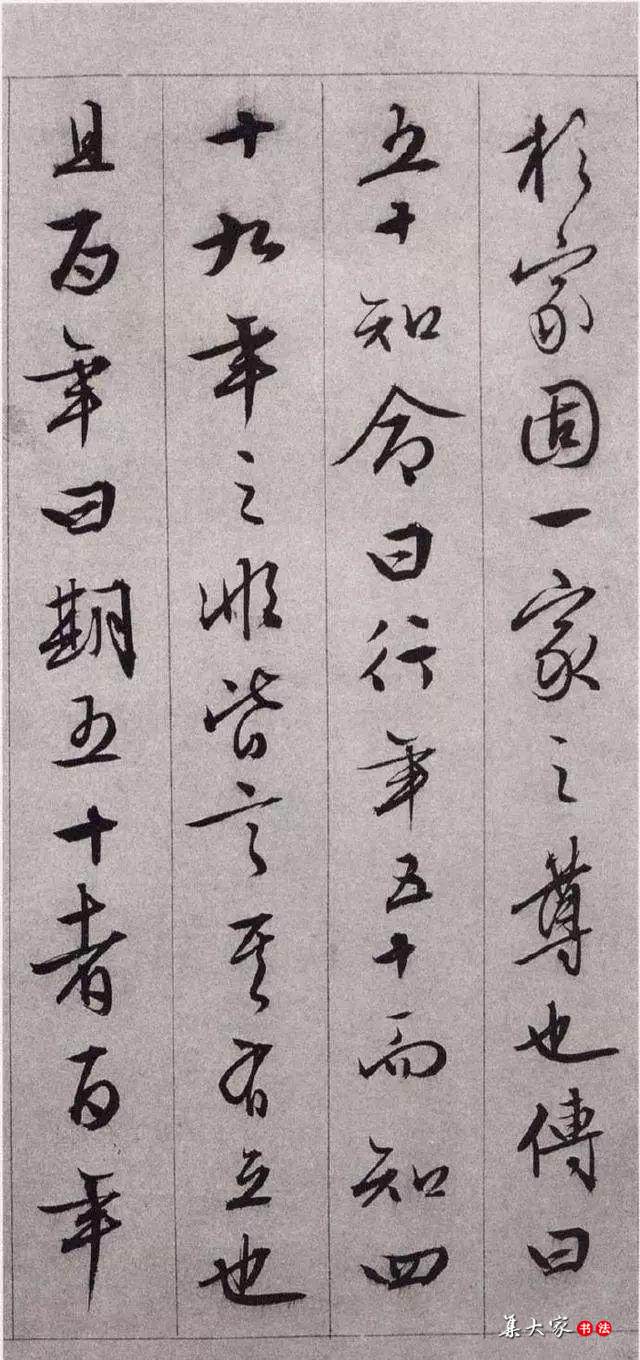 於家固一家之尊也傳曰
五十知命曰行年五十而知四
十九年之非皆言其有立也
且百年曰期五十者百年
集大家书法